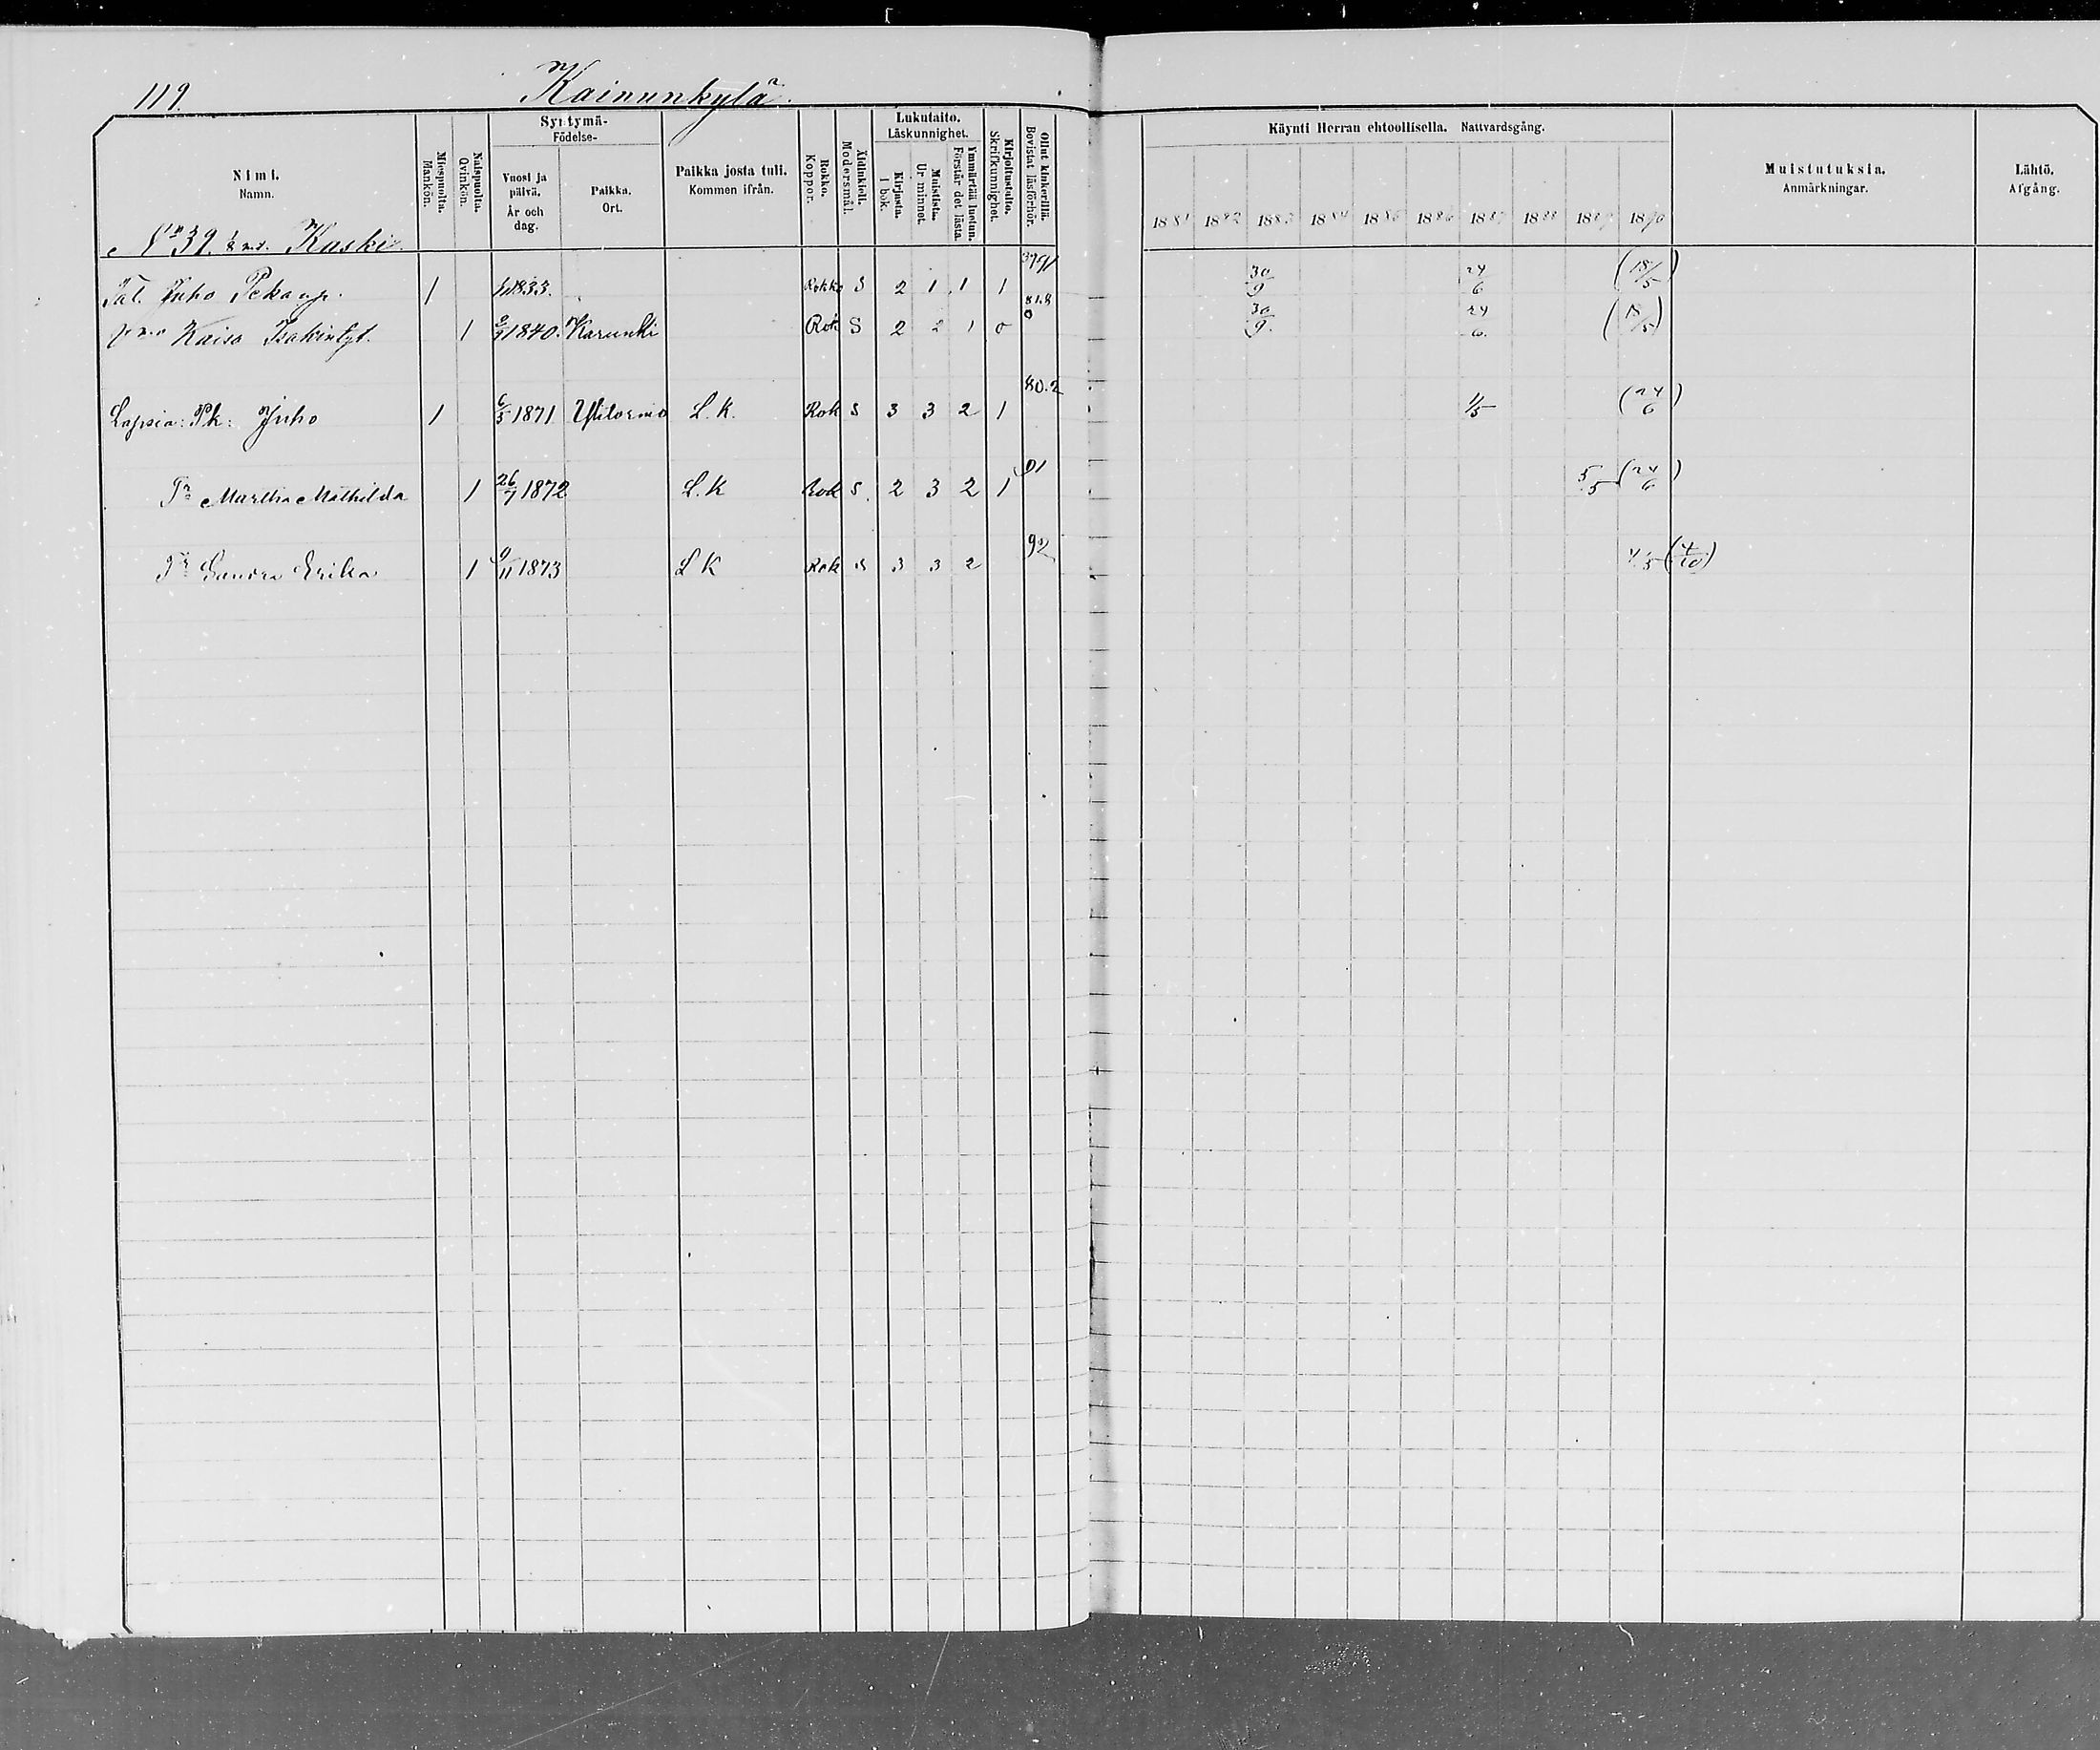 119. Kainunkylä.
Nimi. Namn.
Miespuolta. Mankön.
Naispuolta. Qvinkön.
Syntymä- Födelse-
Vuosi ja päivä. År och dag.
Paikka. Ort.
Paikka josta tuli. Kommen ifrån.
Rokko. Koppor.
Äidinkieli. Modersmål.
Lukutaito. Läskunnighet.
Kirjasta. I bok.
Muistista. Ur minnet.
Ymmärtää luetun. Förstår det lästa.
Kirjoitustaito. Skrifkunnighet.
Ollut kinkerillä. Bevistat läsförhör.
Käynti Herran ehtoollisella. Nattvardsgång.
1881 1882 1883 1884 1885 1886 1887 1888 1889 1890
Muistutuksia. Anmärkningar.
Lähtö. Afgång.
No 39. Kaski.
Tal. Juho Pekanp. 1 1833. Rokko S 2 1 1 1 30/9 24/6 (18/5)
Kaisa Isakintyt. 1 1840. Karunki Rok S 2 2 1 0 30/9. 24/6. (18/5)
Lapsia: Pk: Juho 1 6/5 1871 Ylitornio L.K. Rok S 3 3 2 1 80.2 1/5 (24/6)
Tr Martha Mathilda 1 26/7 1872 L.K Rok S. 2 3 2 1 91 5/5 (24/6)
Tr Sandra Erika 1 9/11 1873 L K Rok S 3 3 2 92 (4/10)